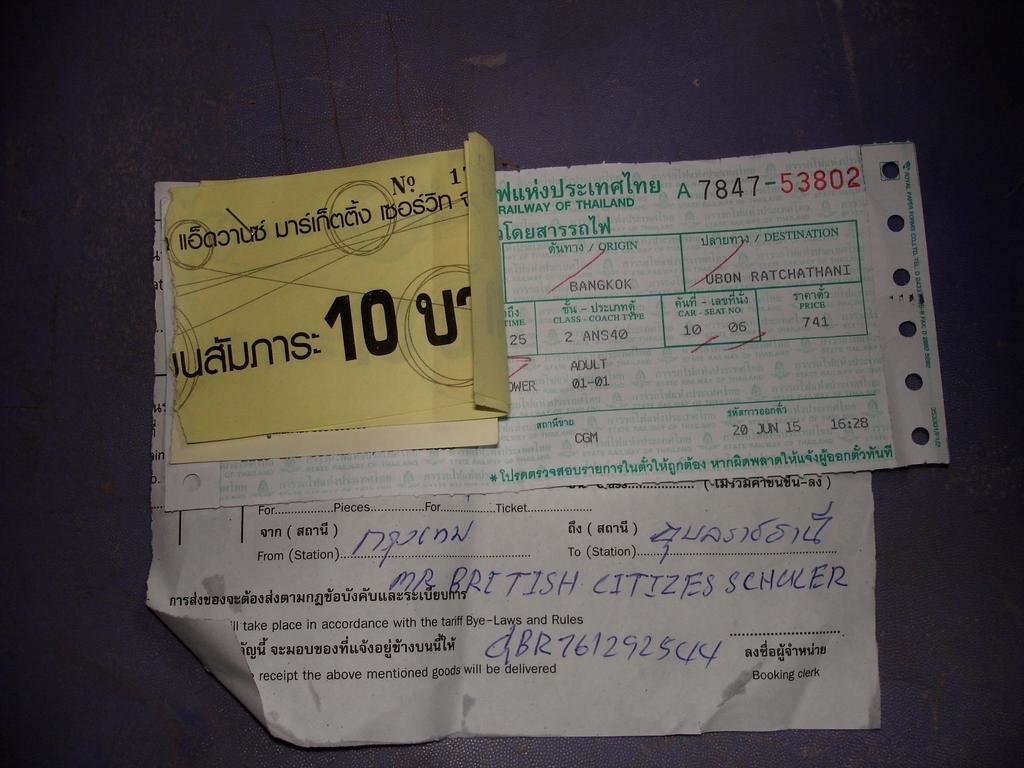 Nº 1
แอ็ดวานซ์ มาร์เก็ตติ้ง เซอร์วิท
นสัมภาระ 10 บา
ฟแห่งประเทศไทย A 7847-53802
RAILWAY OF THAILAND
วโดยสารรถไฟ
ต้นทาง / ORIGIN ปลายทาง / DESTINATION
BANGKOK UBON RATCHATHANI
ถึง ชั้น - ประเภทตู้ คันที่ - เลขที่นั่ง ราคาตั๋ว
TIME CLASS - COACH TYPE CAR - SEAT NO. PRICE
25 2 ANS40 10 06 741
ADULT
OWER 01-01
สถานีขาย รหัสการออกตั๋ว
CGM 20 JUN 15 16:28
* โปรดตรวจสอบรายการในตั๋วให้ถูกต้อง หากผิดพลาดให้แจ้งผู้ออกตั๋วทันที
(ไม่รวมค่าขนขึ้น-ลง)
For Pieces For Ticket
จาก ( สถานี ) กรุงเทพ ถึง ( สถานี ) อุบลราชธานี
From (Station) To (Station)
MR BRITISH CITIZES SCHULER
การส่งของจะต้องส่งตามกฎข้อบังคับและระเบียบการ
ill take place in accordance with the tariff Bye-Laws and Rules
ัญนี้ จะมอบของที่แจ้งอยู่ข้างบนนี้ให้ GBR761292544 ลงชื่อผู้จำหน่าย
receipt the above mentioned goods will be delivered Booking clerk